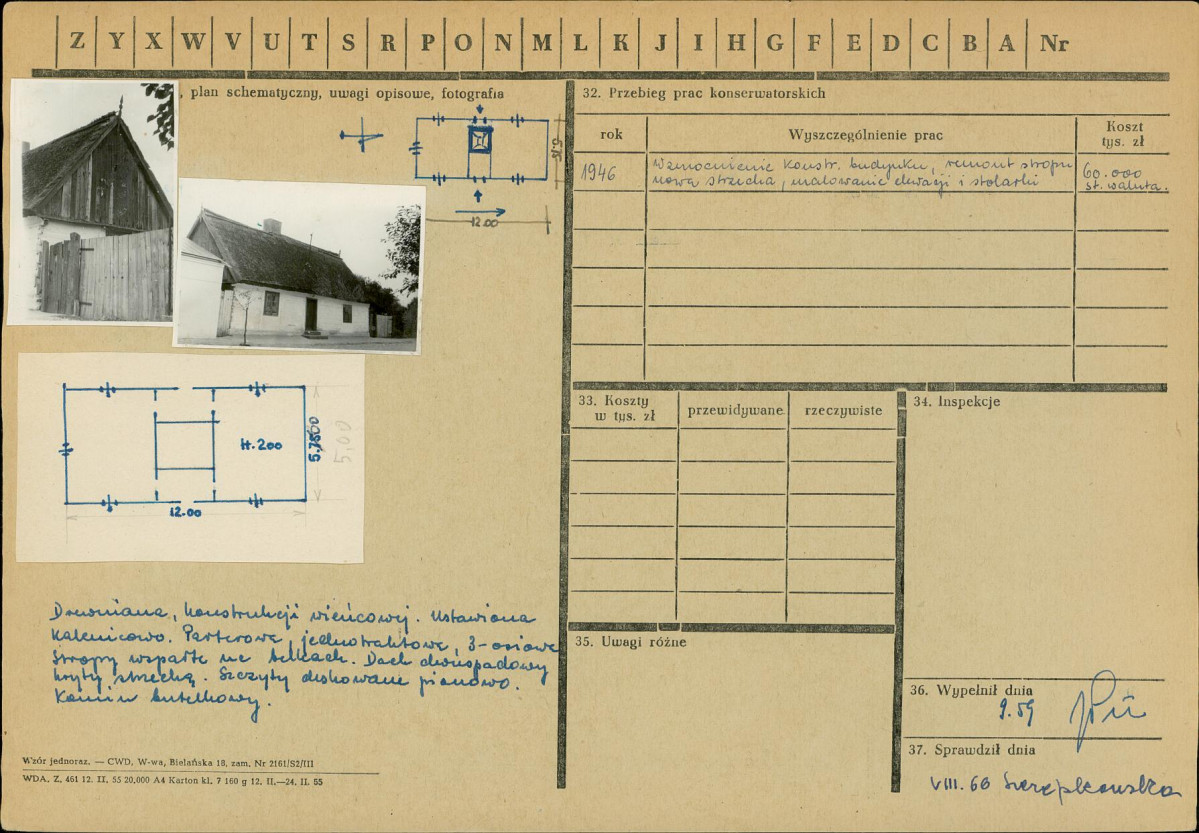 Z Y X W V U T S R P O N M L K J I H G F E D C B A Nr
, plan schematyczny, uwagi opisowe, fotografia
12.00
H. 200
5,00
12.00
Drewniana, konstrukcji wieńcowej. Ustawiona
kalenicowo. Parterowa, jednotraktowa, 3-osiowa
Stropy wsparte na belkach. Dach dwuspadowy
kryty strzechą. Szczyty deskowane pionowo.
Komin butelkowy.
Wzór jednoraz. — CWD, W-wa, Bielańska 18, zam. Nr 2161/S2/III
WDA. Z. 461 12. II. 55 20.000 A4 Karton kl. 7 160 g 12. II.—24. II. 55
32. Przebieg prac konserwatorskich
rok Wyszczególnienie prac Koszt
tys. zł
1946 Wzmocnienie konstr. budynku, remont stropu
nowa strzecha, malowanie elewacji i stolarki
60.000
st. waluta.
33. Koszty
w tys. zł
przewidywane rzeczywiste
34. Inspekcje
35. Uwagi różne
36. Wypełnił dnia
9.59
37. Sprawdził dnia
VIII. 60